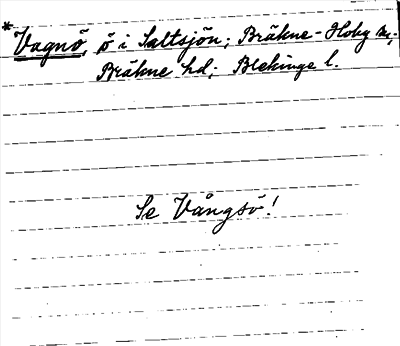 *Vagnö, ö i Saltsjön; Bräkne-Hoby sn;
Bräkne hd; Blekinge l.
Se Vångsö!